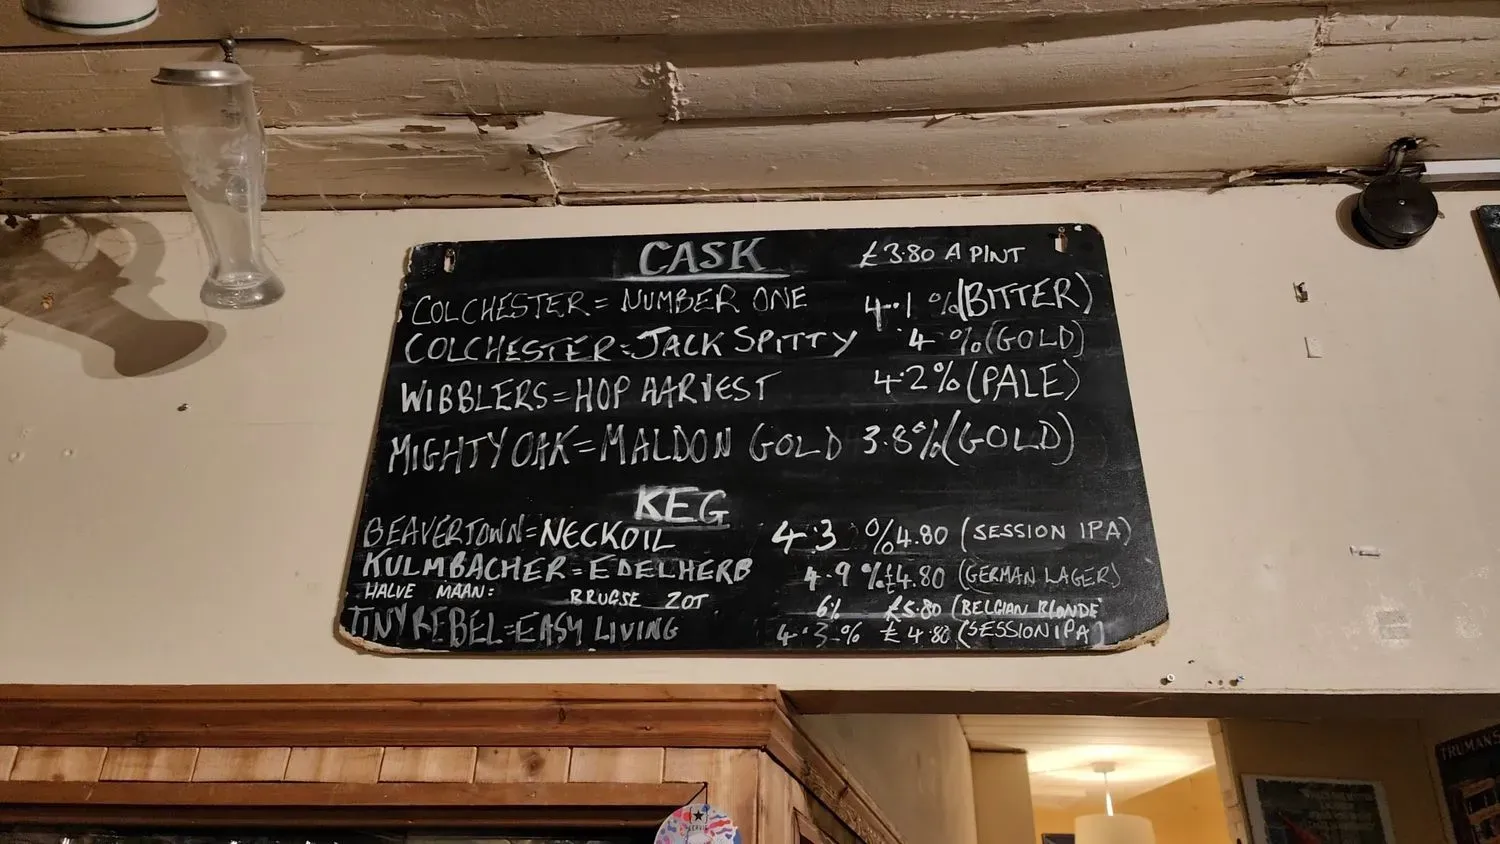 CASK £3.80 A PINT
COLCHESTER = NUMBER ONE 4.1 % (BITTER)
COLCHESTER = JACK SPITTY 4 % (GOLD)
WIBBLERS = HOP HARVEST 4.2% (PALE)
MIGHTY OAK = MALDON GOLD 3.8% (GOLD)
KEG
BEAVERTOWN = NECKOIL 4.3 % 4.80 (SESSION IPA)
KULMBACHER = EDELHERB 4.9 % £4.80 (GERMAN LAGER)
HALVE MAAN: BRUGSE ZOT 6% £5.80 (BELGIAN BLONDE
TINY REBEL = EASY LIVING 4.3 % £4.80 (SESSION IPA)
TRUMANS